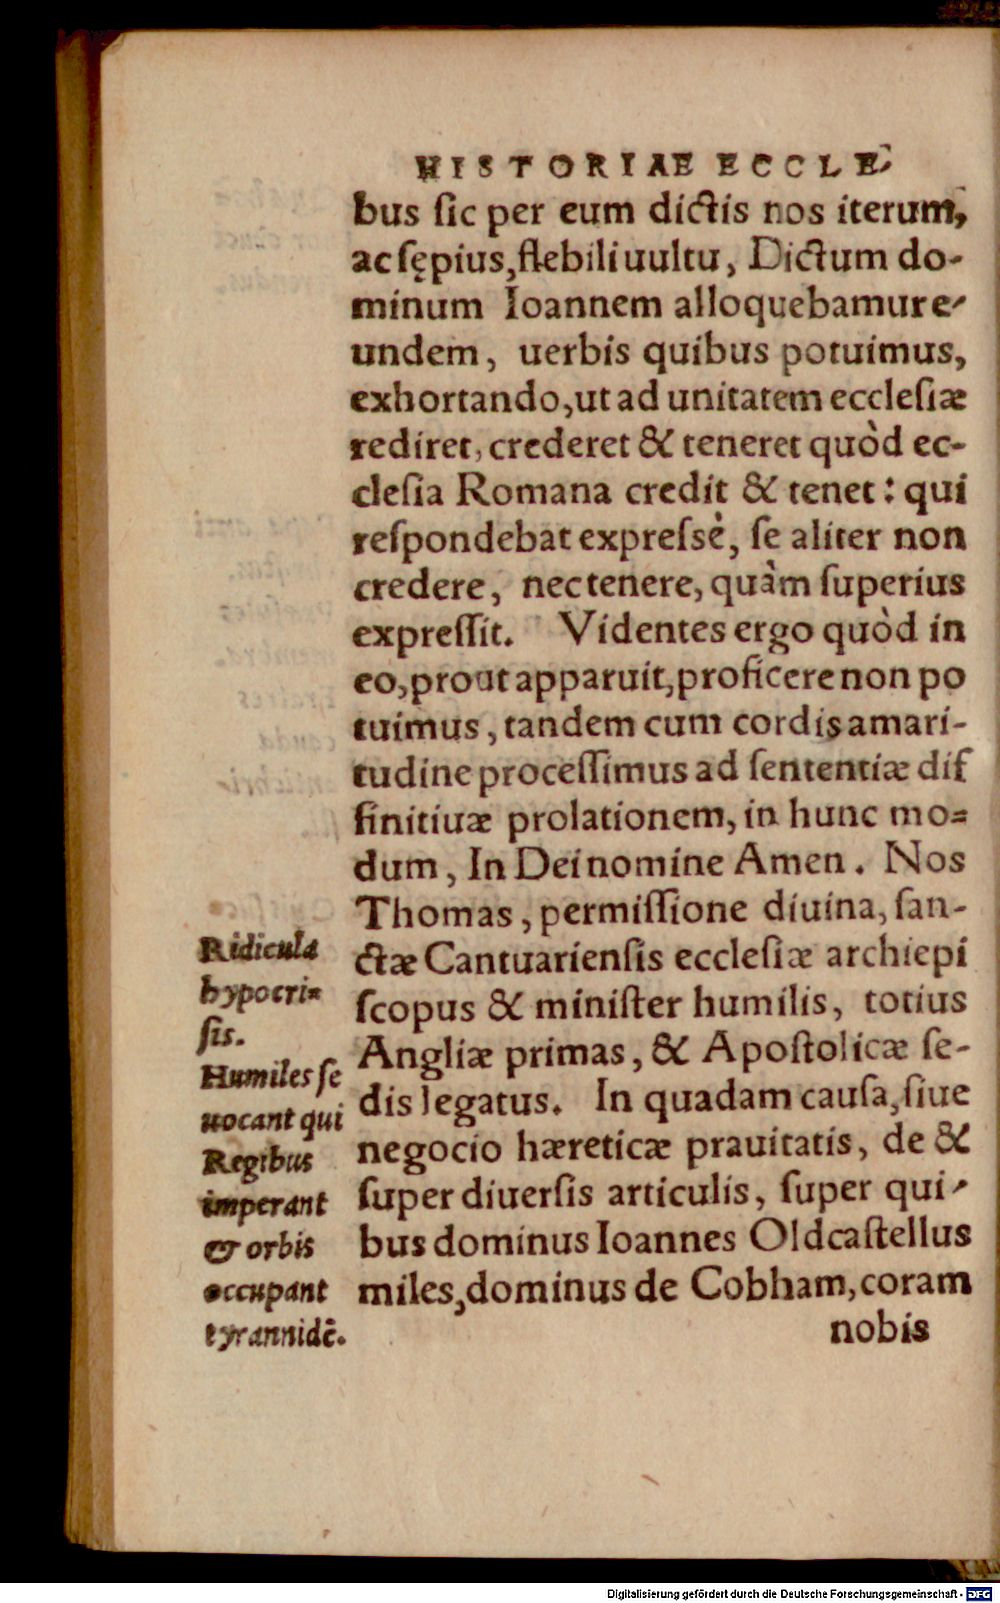 HISTORIAE ECCLE-
bus ſic per eum dictis nos iterum,
ac ſępius, flebili uultu, Dictum do-
minum Ioannem alloquebamur e-
undem, uerbis quibus potuimus,
exhortando, ut ad unitatem eccleſiæ
rediret, crederet & teneret quòd ec-
cleſia Romana credit & tenet: qui
reſpondebat expreſsè, ſe aliter non
credere, nec tenere, quàm ſuperius
expreſſit. Videntes ergo quòd in
eo, prout apparuit, proficere non po
tuimus, tandem cum cordis amari-
tudine proceſſimus ad ſententiæ dif
finitiuæ prolationem, in hunc mo=
dum, In Dei nomine Amen. Nos
Thomas, permiſſione diuina, ſan-
ctæ Cantuarienſis eccleſiæ archiepi
ſcopus & miniſter humilis, totius
Angliæ primas, & Apoſtolicæ ſe-
dis legatus. In quadam cauſa, ſiue
negocio hæreticæ prauitatis, de &
ſuper diuerſis articulis, ſuper qui-
bus dominus Ioannes Oldcaſtellus
miles, dominus de Cobham, coram
nobis
Ridicula
hypocri=
ſis.
Humiles ſe
uocant qui
Regibus
imperant
& orbis
occupant
tyrannidē.
Digitalisierung gefördert durch die Deutsche Forschungsgemeinschaft - DFG